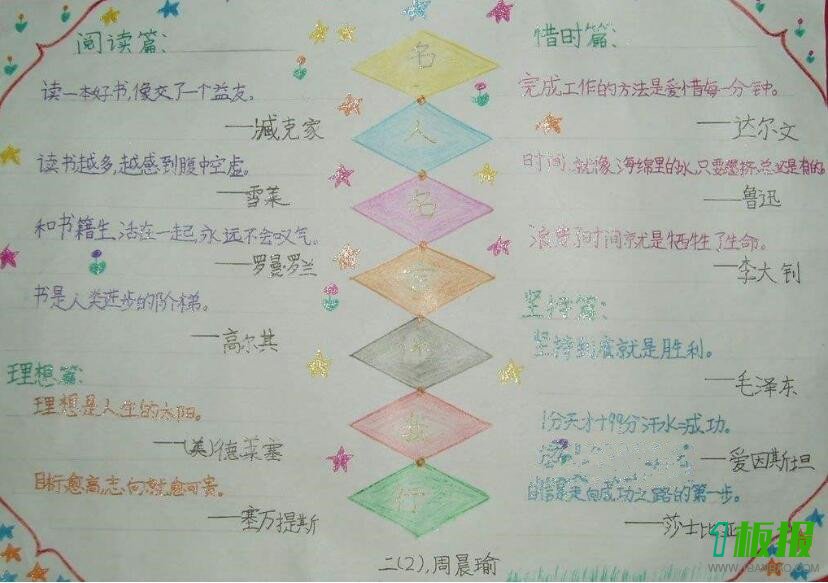 阅读篇:
读一本好书,像交了一个益友。
——臧克家
读书越多,越感到腹中空虚。
——雪莱
和书籍生活在一起,永远不会叹气。
——罗曼·罗兰
书是人类进步的阶梯。
——高尔其
理想篇:
理想是人生的太阳。
——(美)德莱塞
目标愈高,志向就愈可贵。
——塞万提斯
名
人
名
言
伴
我
行
惜时篇:
完成工作的方法是爱惜每一分钟。
——达尔文
时间,就像海绵里的水,只要愿挤,总还是有的。
——鲁迅
浪费了时间就是牺牲了生命。
——李大钊
坚持篇:
坚持到底就是胜利。
——毛泽东
1分天才+99分汗水=成功。
——爱因斯坦
自信是走向成功之路的第一步。
——莎士比亚
二(2),周晨瑜
板报
WWW.1BANBAO.COM